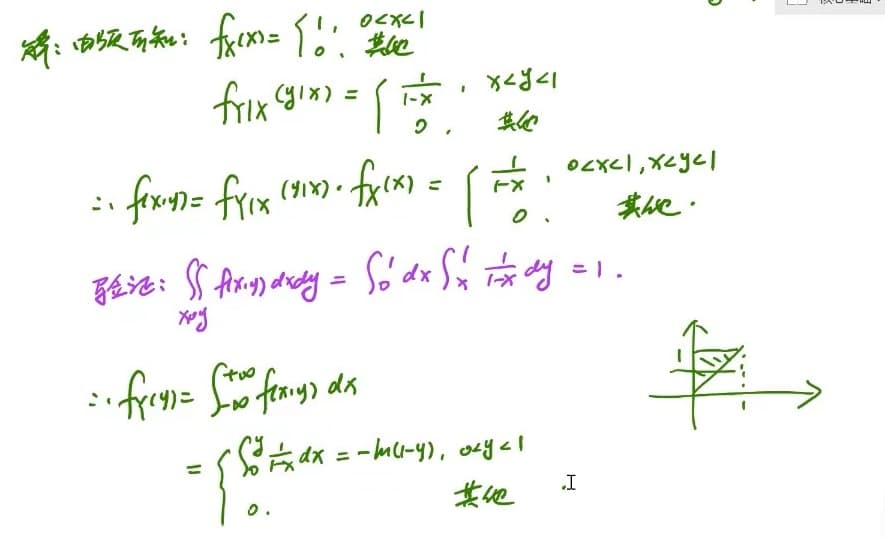 解：由题可知：f_X(x) = { 1, 0<x<1
0. 其他
f_{Y|X}(y|x) = { 1/(1-x), x<y<1
0, 其他
∴ f(x,y) = f_{Y|X}(y|x) · f_X(x) = { 1/(1-x), 0<x<1, x<y<1
0. 其他.
验证: ∬ f(x,y) dxdy = ∫₀¹ dx ∫ₓ¹ 1/(1-x) dy = 1.
∴ f_Y(y) = ∫_{-∞}^{+∞} f(x,y) dx
1
= { ∫₀^y 1/(1-x) dx = -ln(1-y), 0<y<1
0. 其他